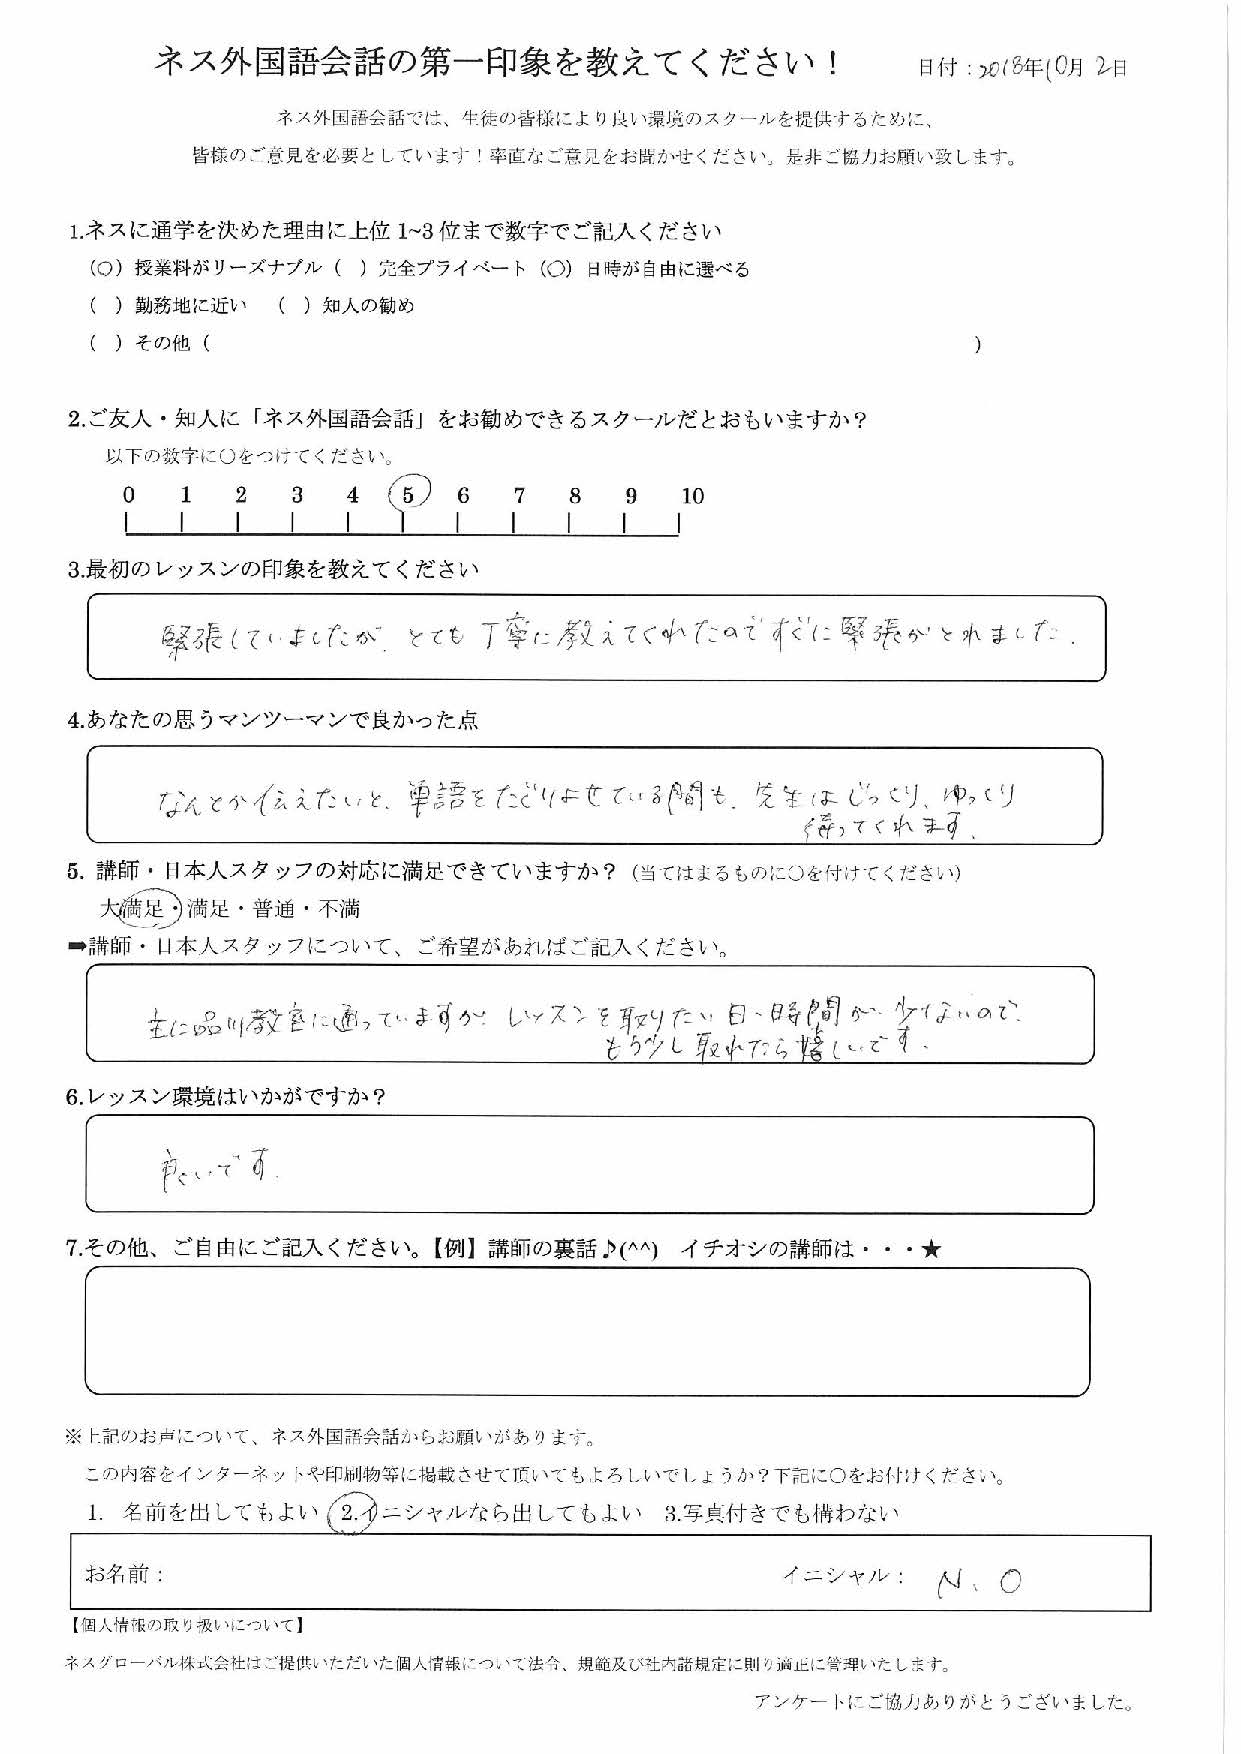 ネス外国語会話の第一印象を教えてください！ 日付：2018年10月2日
ネス外国語会話では、生徒の皆様により良い環境のスクールを提供するために、
皆様のご意見を必要としています！率直なご意見をお聞かせください。是非ご協力お願い致します。
1.ネスに通学を決めた理由に上位1~3位まで数字でご記入ください
（○）授業料がリーズナブル（　）完全プライベート（○）日時が自由に選べる
（　）勤務地に近い　（　）知人の勧め
（　）その他（　）
2.ご友人・知人に「ネス外国語会話」をお勧めできるスクールだとおもいますか？
以下の数字に○をつけてください。
0 1 2 3 4 5 6 7 8 9 10
3.最初のレッスンの印象を教えてください
緊張していましたが、とても丁寧に教えてくれたのですぐに緊張がとれました.
4.あなたの思うマンツーマンで良かった点
なんとか伝えたいと、単語をたどりよせている間も、先生はじっくり、ゆっくり
待ってくれます.
5. 講師・日本人スタッフの対応に満足できていますか？（当てはまるものに○を付けてください）
大満足・満足・普通・不満
➡講師・日本人スタッフについて、ご希望があればご記入ください。
主に品川教室に通っていますが、レッスンを取りたい日・時間が少ないので、
もう少し取れたら嬉しいです.
6.レッスン環境はいかがですか？
良いです.
7.その他、ご自由にご記入ください。【例】講師の裏話♪(^^)　イチオシの講師は・・・★
※上記のお声について、ネス外国語会話からお願いがあります。
この内容をインターネットや印刷物等に掲載させて頂いてもよろしいでしょうか？下記に○をお付けください。
1.　名前を出してもよい　2.イニシャルなら出してもよい　3.写真付きでも構わない
お名前：　イニシャル：　N、O
【個人情報の取り扱いについて】
ネスグローバル株式会社はご提供いただいた個人情報について法令、規範及び社内諸規定に則り適正に管理いたします。
アンケートにご協力ありがとうございました。